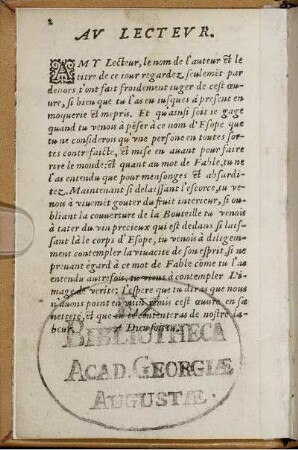 2
AV LECTEVR.
AMY Lecteur, le nom de l'auteur et le
titre de ce iour regardez, seulemēt par
dehors t'ont fait froidement iuger de cest œu-
ure, si bien que tu l'as eu iusques à present en
moquerie et mepris. Et qu'ainsi soit ie gage
quand tu venois à pēser à ce nom d'Esope que
tu ne considerois qu'vne persone en toutes sor-
tes contrefaicte, et mise en auant pour faire
rire le monde: et quant au mot de Fable, tu ne
l'as entendu que pour mensonges et absurdi-
tez. Maintenant si delaissant l'escorce, tu ve-
nois à viuemēt gouter du fruit interieur, si ou-
bliant la couuerture de la Bouteille tu venois
à tater du vin precieux qui est dedans si lais-
sant là le corps d'Esope, tu venois à diligem-
ment contempler la viuacite de son esprit, si ne
prenant egard à ce mot de Fable cōme tu l'as
entendu autrefois, tu venois à contempler L'i-
mage de verite: i'espere que tu diras que nous
n'auons point en vain remis cest œuure en sa
netteté, et que tu te contenteras de nostre la-
beur. A Dieu sois tu.
EX
BIBLIOTHECA
ACAD. GEORGIÆ
AUGUSTÆ.